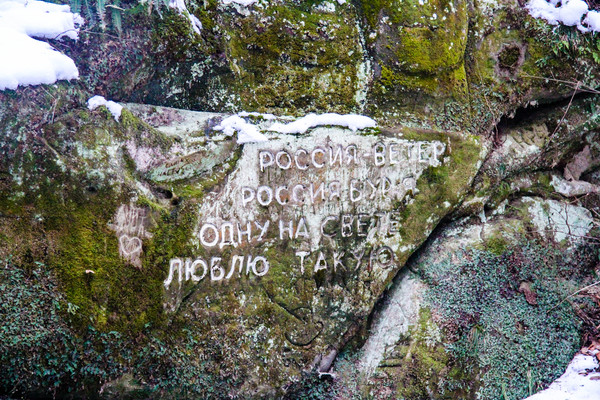 РОССИЯ-ВЕТЕР
РОССИЯ БУРЯ
ОДНУ НА СВЕТЕ
ЛЮБЛЮ ТАКУЮ